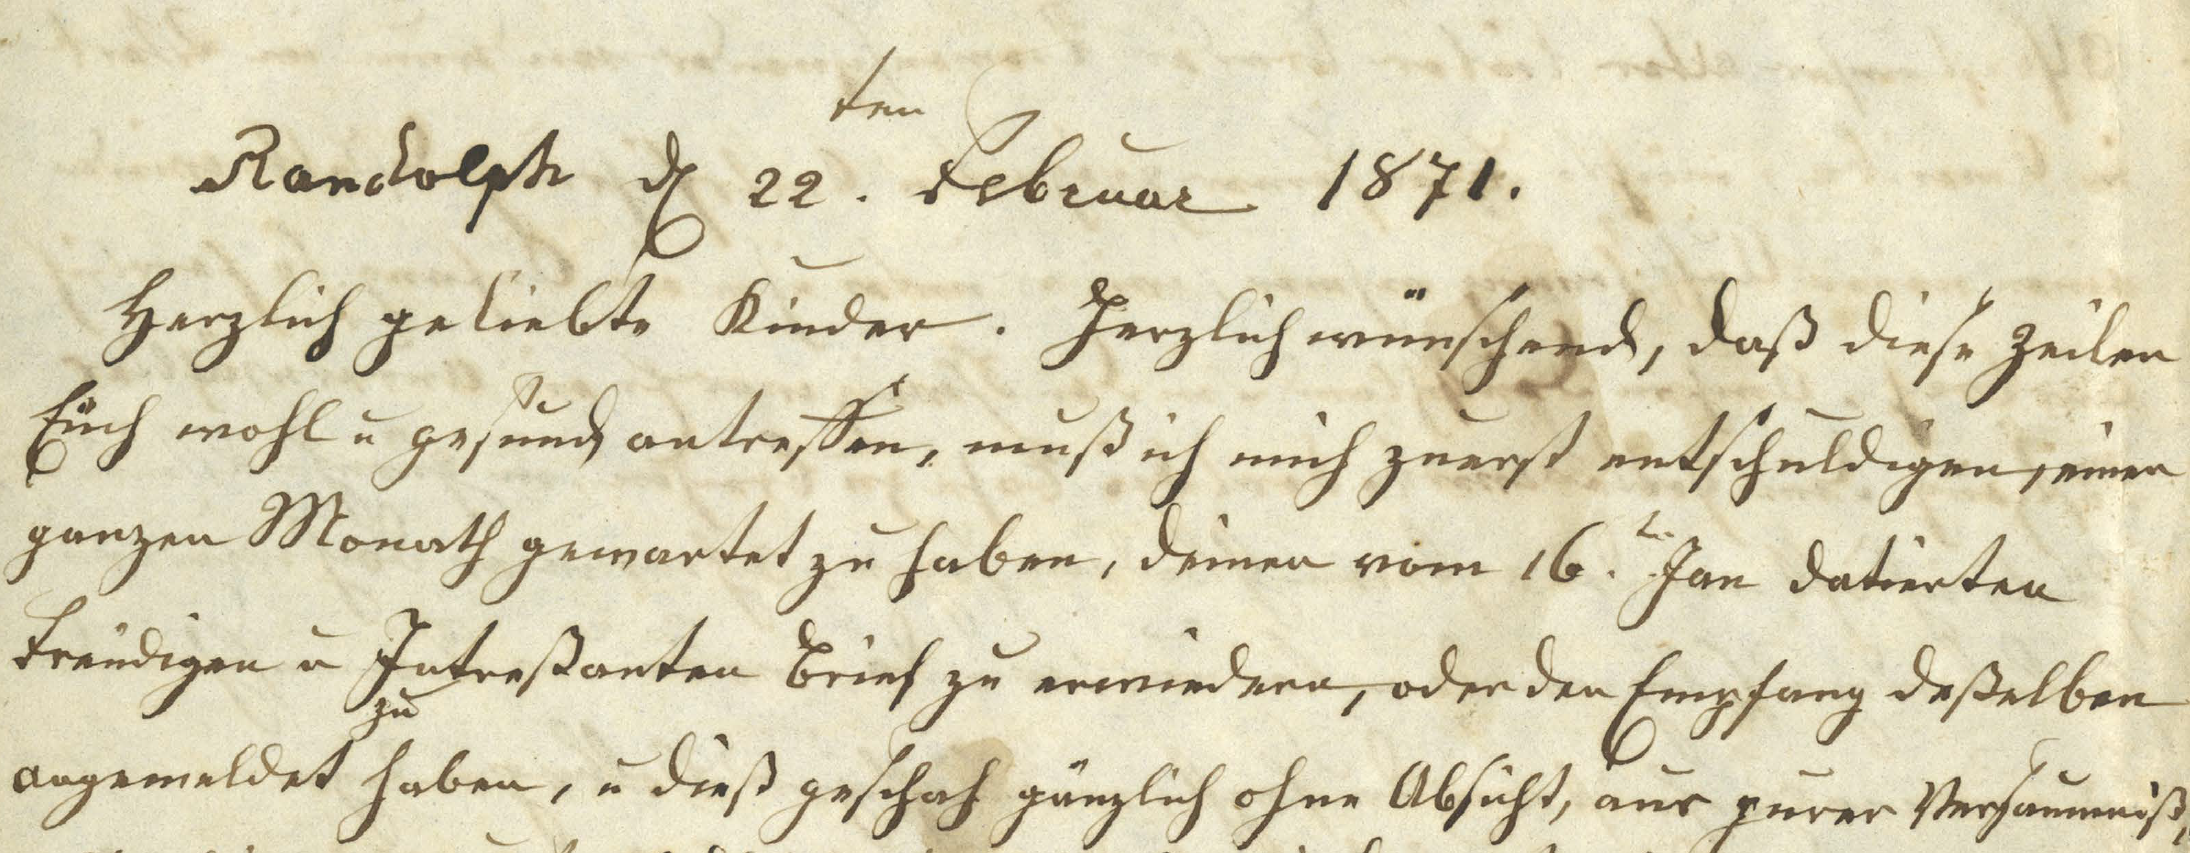 Randolph d 22.ten Februar 1871.
Herzlich geliebte Kinder. Herzlich wünschend, daß diese Zeilen
Euch wohl u gesund antreffen, muß ich mich zuerst entschuldigen, einen
ganzen Monath gewartet zu haben, deinen vom 16.ten Jan datierten
freudigen u Intreßanten Brief zu erwiedern, oder den Empfang deßelben
angemeldet zu haben, u dieß geschah gänzlich ohne Absicht, aus purer Versäumniß,